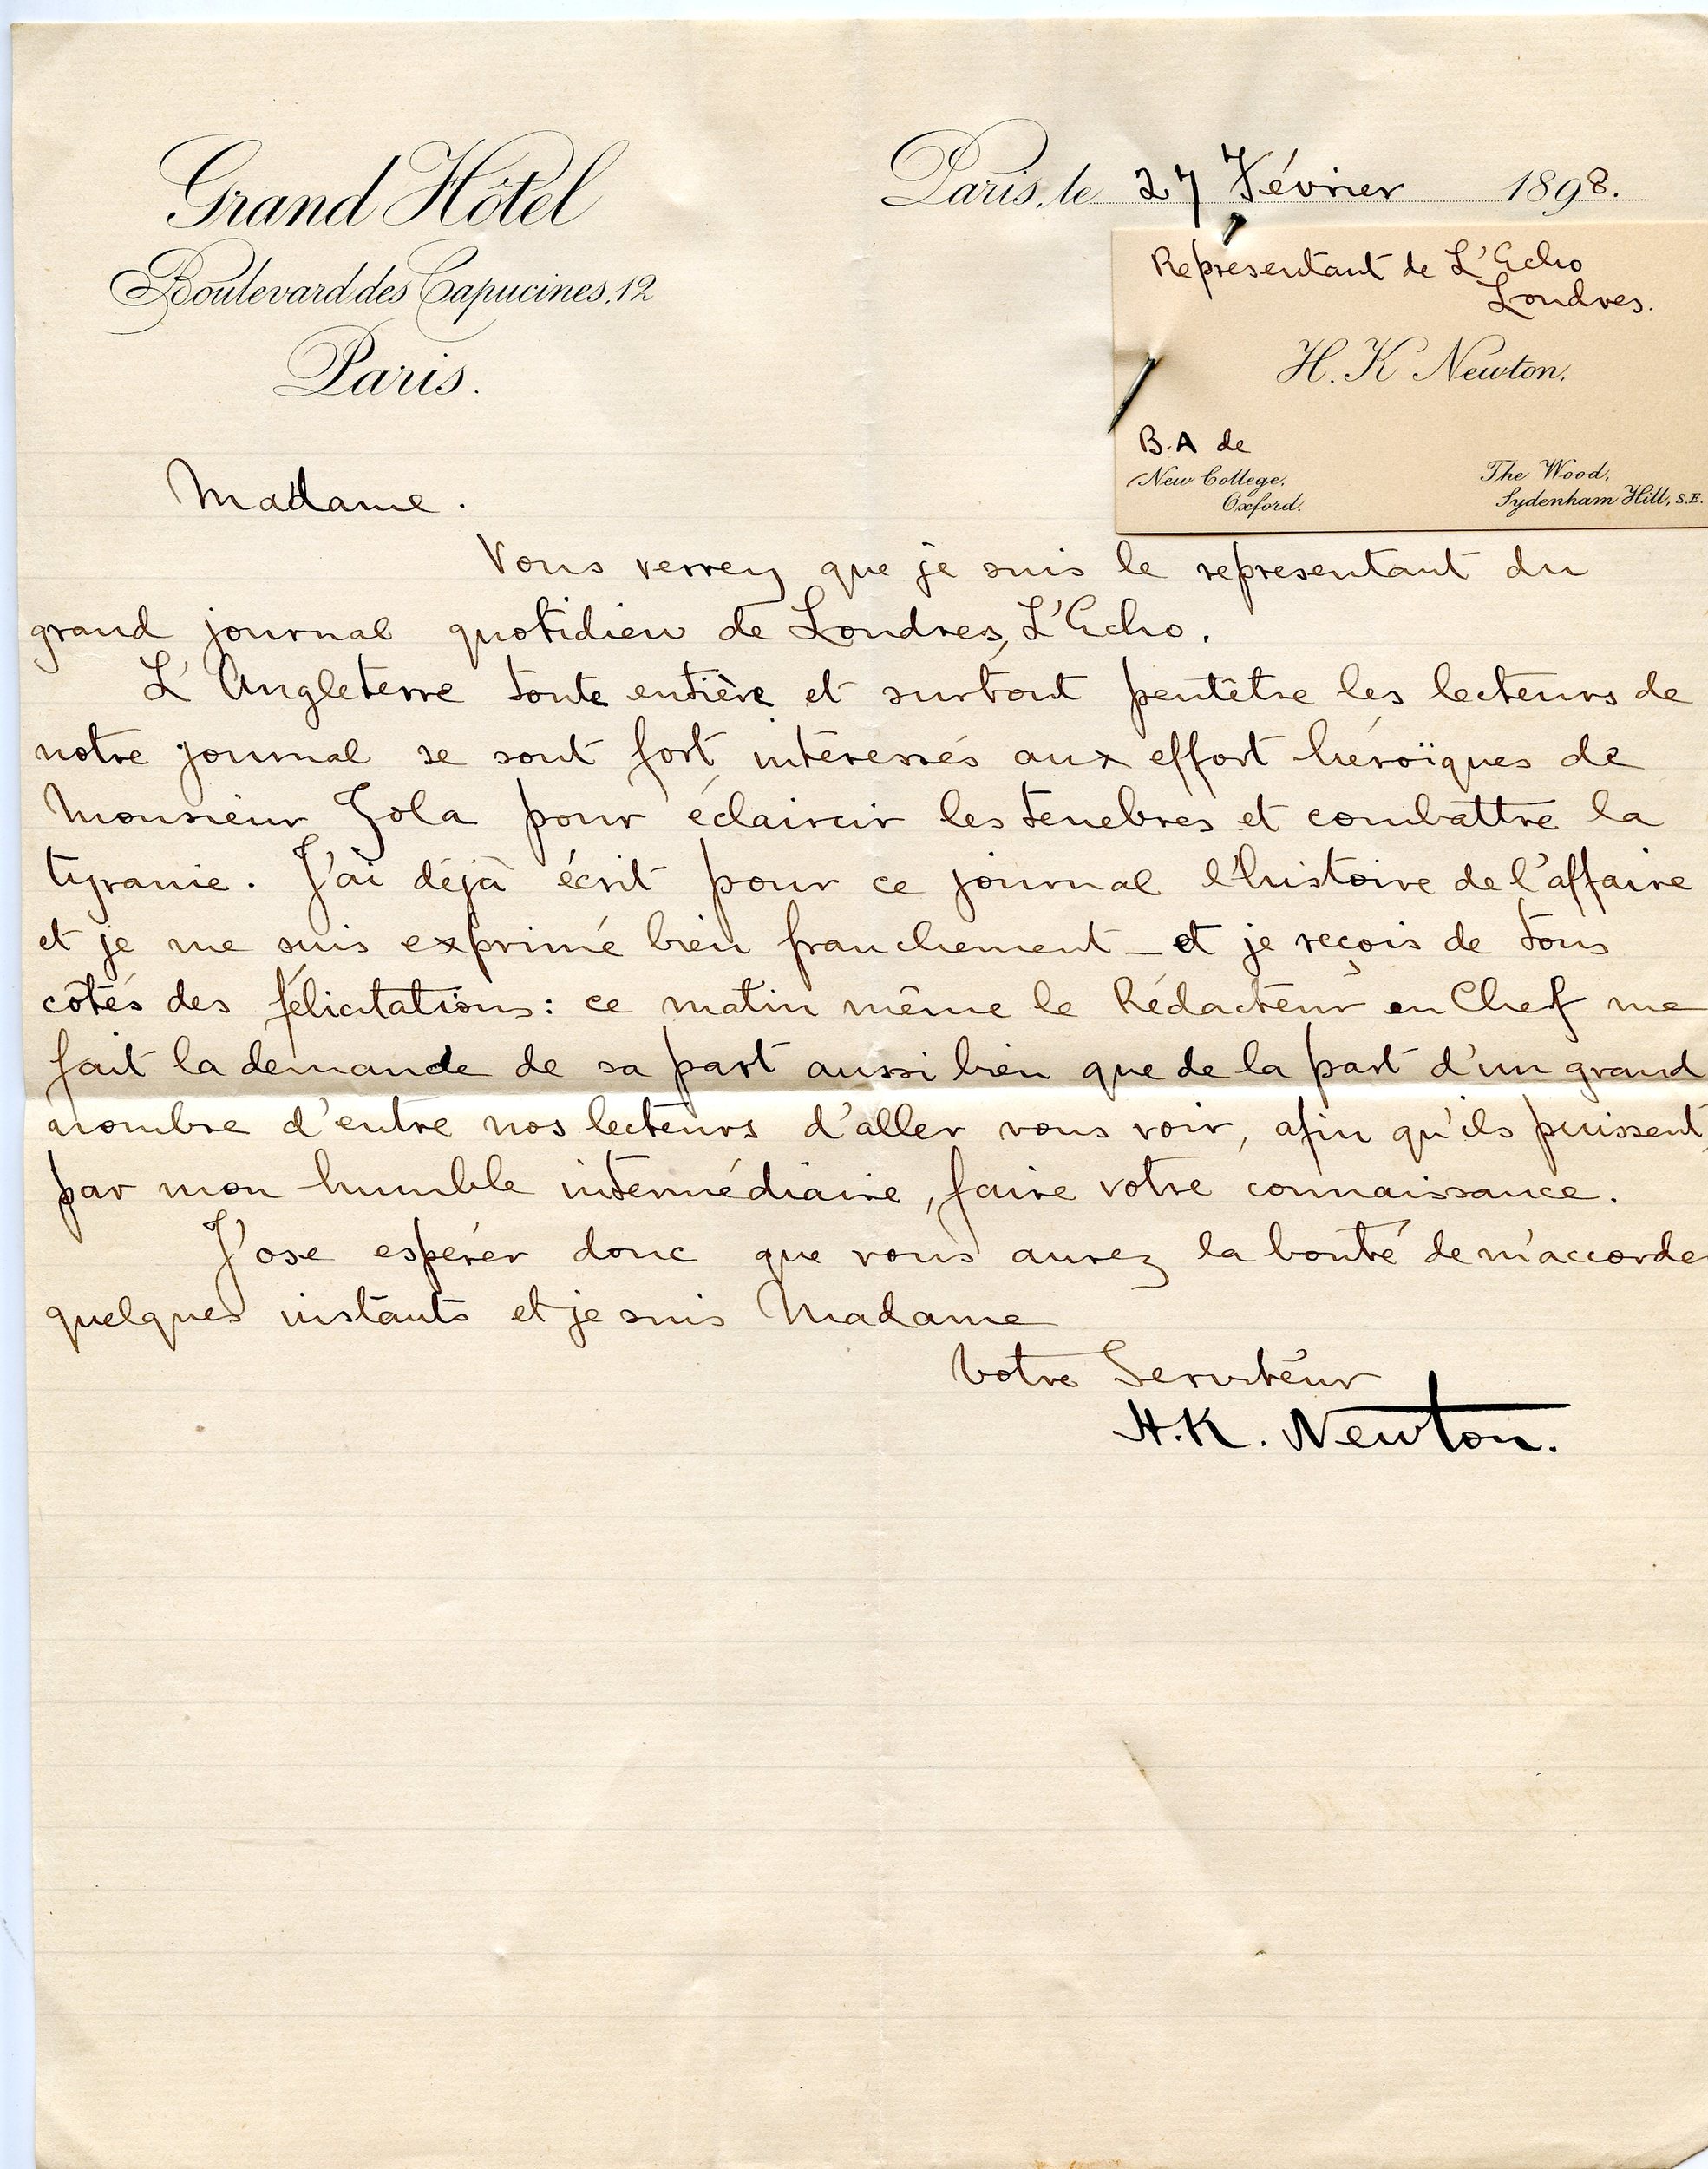 Grand Hôtel
Boulevard des Capucines, 12
Paris.
Paris, le 27 Février 1898.
Representant de L'Echo
Londres.
H. K Newton.
B.A de
New College,
Oxford.
The Wood,
Sydenham Hill, S.E.
Madame.
Vous verrez que je suis le representant du
grand journal quotidien de Londres, L'Echo.
L'Angleterre toute entière et surtout peutêtre les lecteurs de
notre journal se sont fort intéressés aux effort héroïques de
Monsieur Zola pour éclaircir les tenebres et combattre la
tyranie. J'ai déjà écrit pour ce journal l'histoire de l'affaire
et je me suis exprimé bien franchement – et je reçois de tous
côtés des félicitations: ce matin même le Rédacteur en Chef me
fait la demande de sa part aussi bien que de la part d'un grand
nombre d'entre nos lecteurs d'aller vous voir, afin qu'ils puissent,
par mon humble intermédiaire, faire votre connaissance.
J'ose espérer donc que vous aurez la bonté de m'accorder
quelques instants et je suis Madame
Votre Serviteur
H.K. Newton.